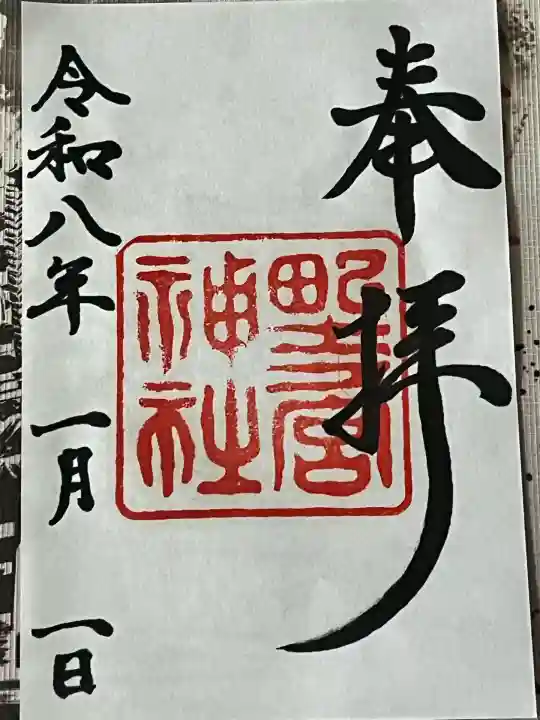 奉拝
野宮
神社
令和八年 一月 一日